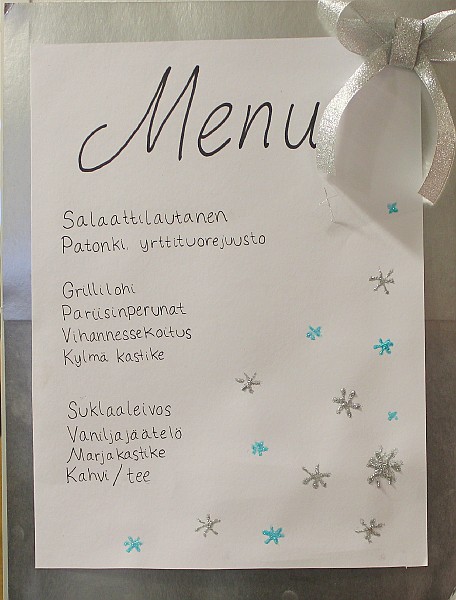 Menu
Salaattilautanen
Patonki, yrttituorejuusto
Grillilohi
Pariisinperunat
Vihannessekoitus
Kylmä kastike
Suklaaleivos
Vaniljajäätelö
Marjakastike
Kahvi/tee